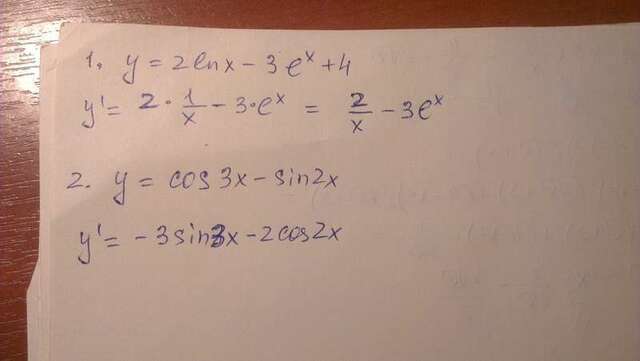 1. y = 2lnx - 3e^x + 4
y' = 2 · 1/x - 3·e^x = 2/x - 3e^x
2. y = cos3x - sin2x
y' = -3sin3x - 2cos2x